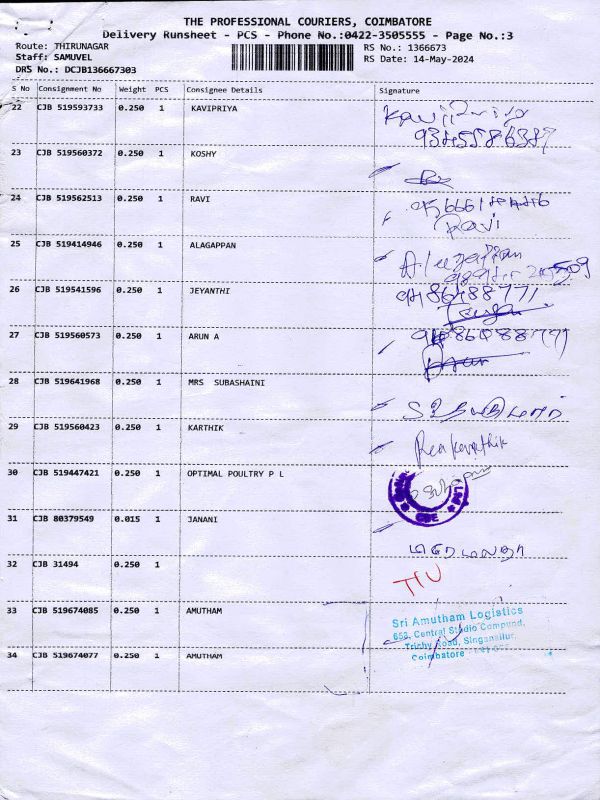 THE PROFESSIONAL COURIERS, COIMBATORE
Delivery Runsheet - PCS - Phone No.:0422-3505555 - Page No.:3
Route: THIRUNAGAR
Staff: SAMUVEL
DRS No.: DCJB136667303
RS No.: 1366673
RS Date: 14-May-2024
S No Consignment No Weight PCS Consignee Details Signature
22 CJB 519593733 0.250 1 KAVIPRIYA
9345586389
23 CJB 519560372 0.250 1 KOSHY
24 CJB 519562513 0.250 1 RAVI
Ravi
25 CJB 519414946 0.250 1 ALAGAPPAN
26 CJB 519541596 0.250 1 JEYANTHI
27 CJB 519560573 0.250 1 ARUN A
28 CJB 519641968 0.250 1 MRS SUBASHAINI
29 CJB 519560423 0.250 1 KARTHIK
30 CJB 519447421 0.250 1 OPTIMAL POULTRY P L
CBE
31 CJB 80379549 0.015 1 JANANI
32 CJB 31494 0.250 1
33 CJB 519674085 0.250 1 AMUTHAM
Sri Amutham Logistics
653, Central Studio Compund,
Trichy Road, Singanallur,
Coimbatore
34 CJB 519674077 0.250 1 AMUTHAM